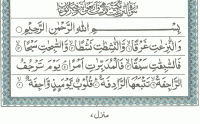 بِسْمِ اللهِ الرَّحْمٰنِ الرَّحِيْمِ
وَالنّٰزِعٰتِ غَرْقًا وَّالنّٰشِطٰتِ نَشْطًا وَّالسّٰبِحٰتِ سَبْحًا
فَالسّٰبِقٰتِ سَبْقًا فَالْمُدَبِّرٰتِ اَمْرًا يَوْمَ تَرْجُفُ
الرَّاجِفَةُ تَتْبَعُهَا الرَّادِفَةُ قُلُوْبٌ يَّوْمَئِذٍ وَّاجِفَةٌ
منزل ٧